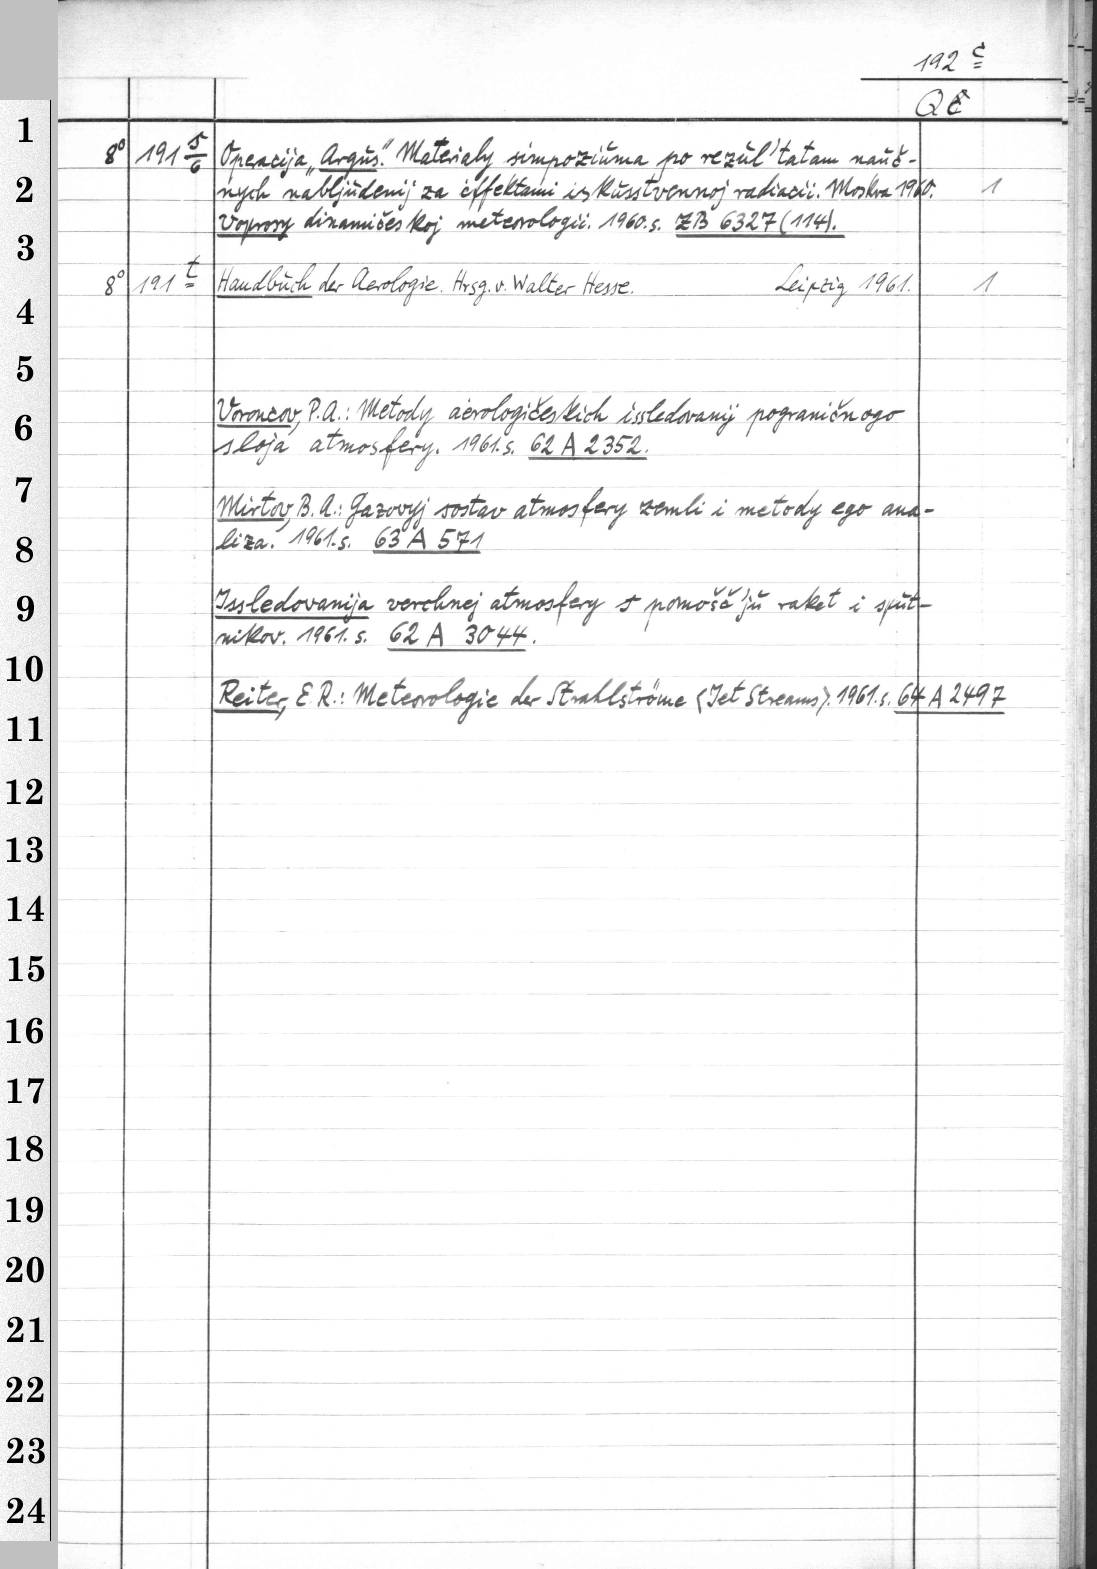 192 c̆
QC̆
1
8° 191 5/6 Operacija „Argus". Materialy simpoziuma po rezul'tatam nauč-
2
nych nabljudenij za ėffektami iskusstvennoj radiacii. Moskva 1960. 1
Voprosy dinamičeskoj meteorologii. 1960. s. ZB 6327 (114).
3
8° 191 t Handbuch der Aerologie. Hrsg. v. Walter Hesse. Leipzig 1961. 1
4
5
Voroncov, P. A.: Metody aėrologičeskich issledovanij pograničnogo
6
sloja atmosfery. 1961. s. 62 A 2352.
7
Mirtov, B. A.: Gazovyj sostav atmosfery zemli i metody ego ana-
8
liza. 1961. s. 63 A 571
9
Issledovanija verchnej atmosfery s pomošč'ju raket i sput-
nikov. 1961. s. 62 A 3044.
10
Reiter, E. R.: Meteorologie der Strahlströme (Jet Streams). 1961. s. 64 A 2497
11
12
13
14
15
16
17
18
19
20
21
22
23
24